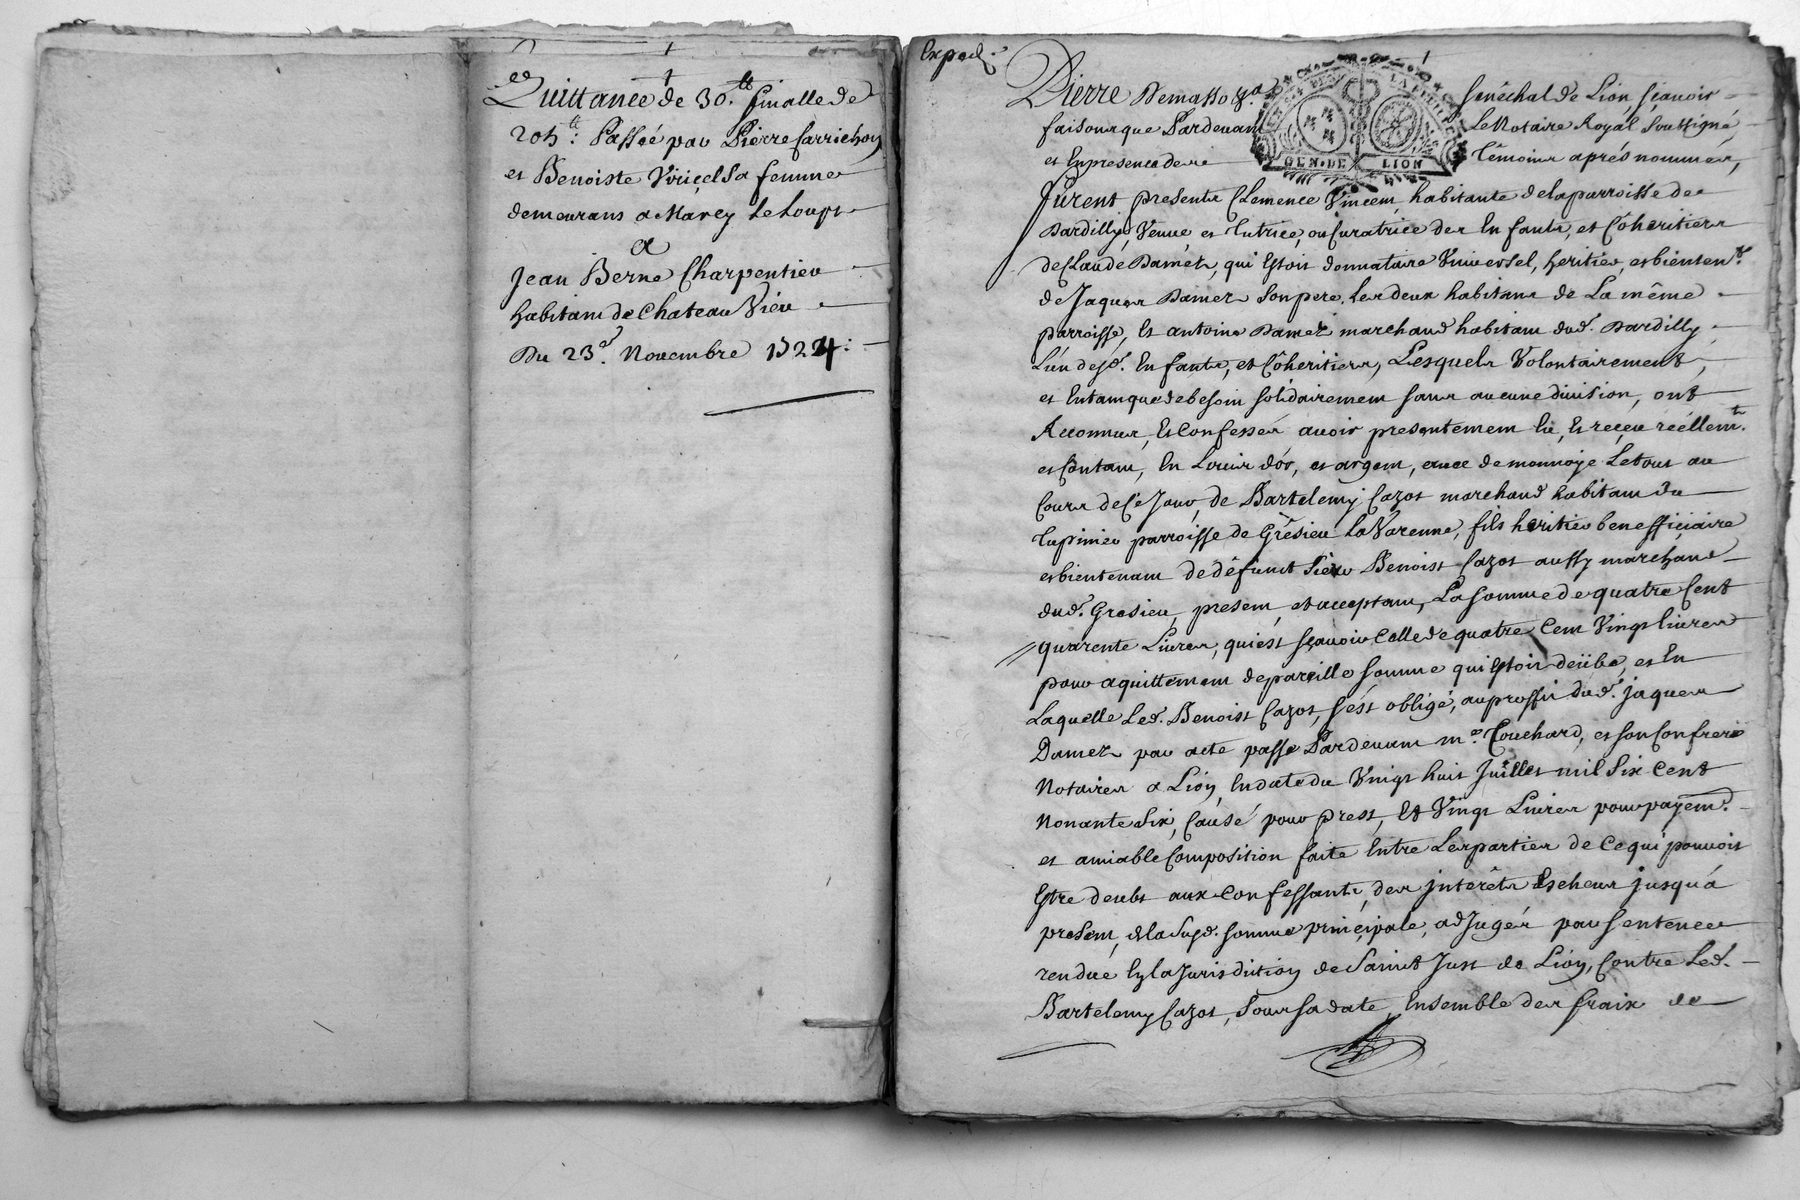 Quittance de 30.tt finalle de
205.tt: Passée par Pierre Carrichon
et Benoiste Vriiçel Sa femme
demeurans a Marcy Le Loups
a
Jean Berne Charpentier
habitant de Chateau Vieu
Du 23.e Novembre 1724:
Exped.
Pierre Demasso &.a Senêchal de Lion sçavoir
faisons que Pardevant Le Notaire Royal Soussigné,
et En presence de têmoins aprés nommés,
GEN. DE LION
Furent presents Clemence Vincent, habitante de la parroisse de
Dardilly, Veuve et tutrice, ou Curatrice des Enfants, et Côheritiers
de Claude Damet, qui Estoit donnataire Universel, heritier, et bienten.t
de Jaques Damet son pere, les deux habitans de La même
parroisse, Et antoine Damet marchand habitant dud. Dardilly,
L'ún desd. Enfants, et Côheritiers, Lesquels Volontairement,
et Entant que de besoin solidairement sans aucune division, ont
Reconnus, Et Confessés avoir presentement Eû, Et reçeu réellem.t
et Contant, En Louis d'or, et argent, avec de monnoye Le tout au
Cours de Ce Jour, de Bartelemy Cazot marchand habitant du
Tupinier parroisse de Grêsieu la Varenne, fils heritier benefficiaire
et bientenant de défunt Sieur Benoist Cazot aussy marchand
dud. Gresieu, present, et acceptant, La somme de quatre Cent
quarente Livres, qui est sçavoir Celle de quatre Cent Vingt livres
pour aquittement de pareille somme qui Estoit deübe, et En
Laquelle Led. Benoist Cazot, s'ést obligé, au proffit dud. Jaques
Damet par acte passé Pardevant m.e Touchard, et son Confrere
Notaires a Lion, En date du Vingt huit Juillet mil Six Cent
Nonante Six, Causé pour prest, Et Vingt Livres pour payem.t
et amiable Composition faite Entre Les parties de Ce qui pouvoit
Estre deubt aux Confessants, des jnterêts Escheus jusqu'á
present, de la susd. somme prinçipale, adJugés par sentence
rendue En la Jurisdition de Saint Just de Lion, Contre Led.
Bartelemy Cazot, Sous sa date, Ensemble des fraix de